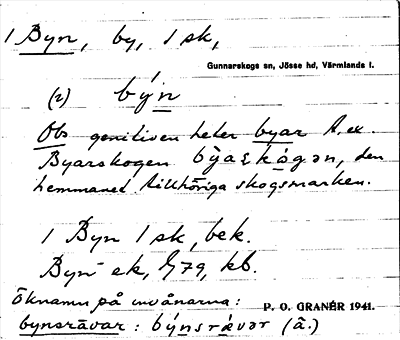 1 Byn, by, 1 sk,
Gunnarskogs sn, Jösse hd, Värmlands l.
(2) býn
Obs genitiven heter byar t.ex.
Byarskogen, den
hemmanet tillhöriga skogsmarken.
1 Byn 1 sk, bek.
Byn ek, G79, kb.
Öknamn på invånarna:
P. O. GRANÉR 1941.
bynsrävar: býnsrævər (ã.)